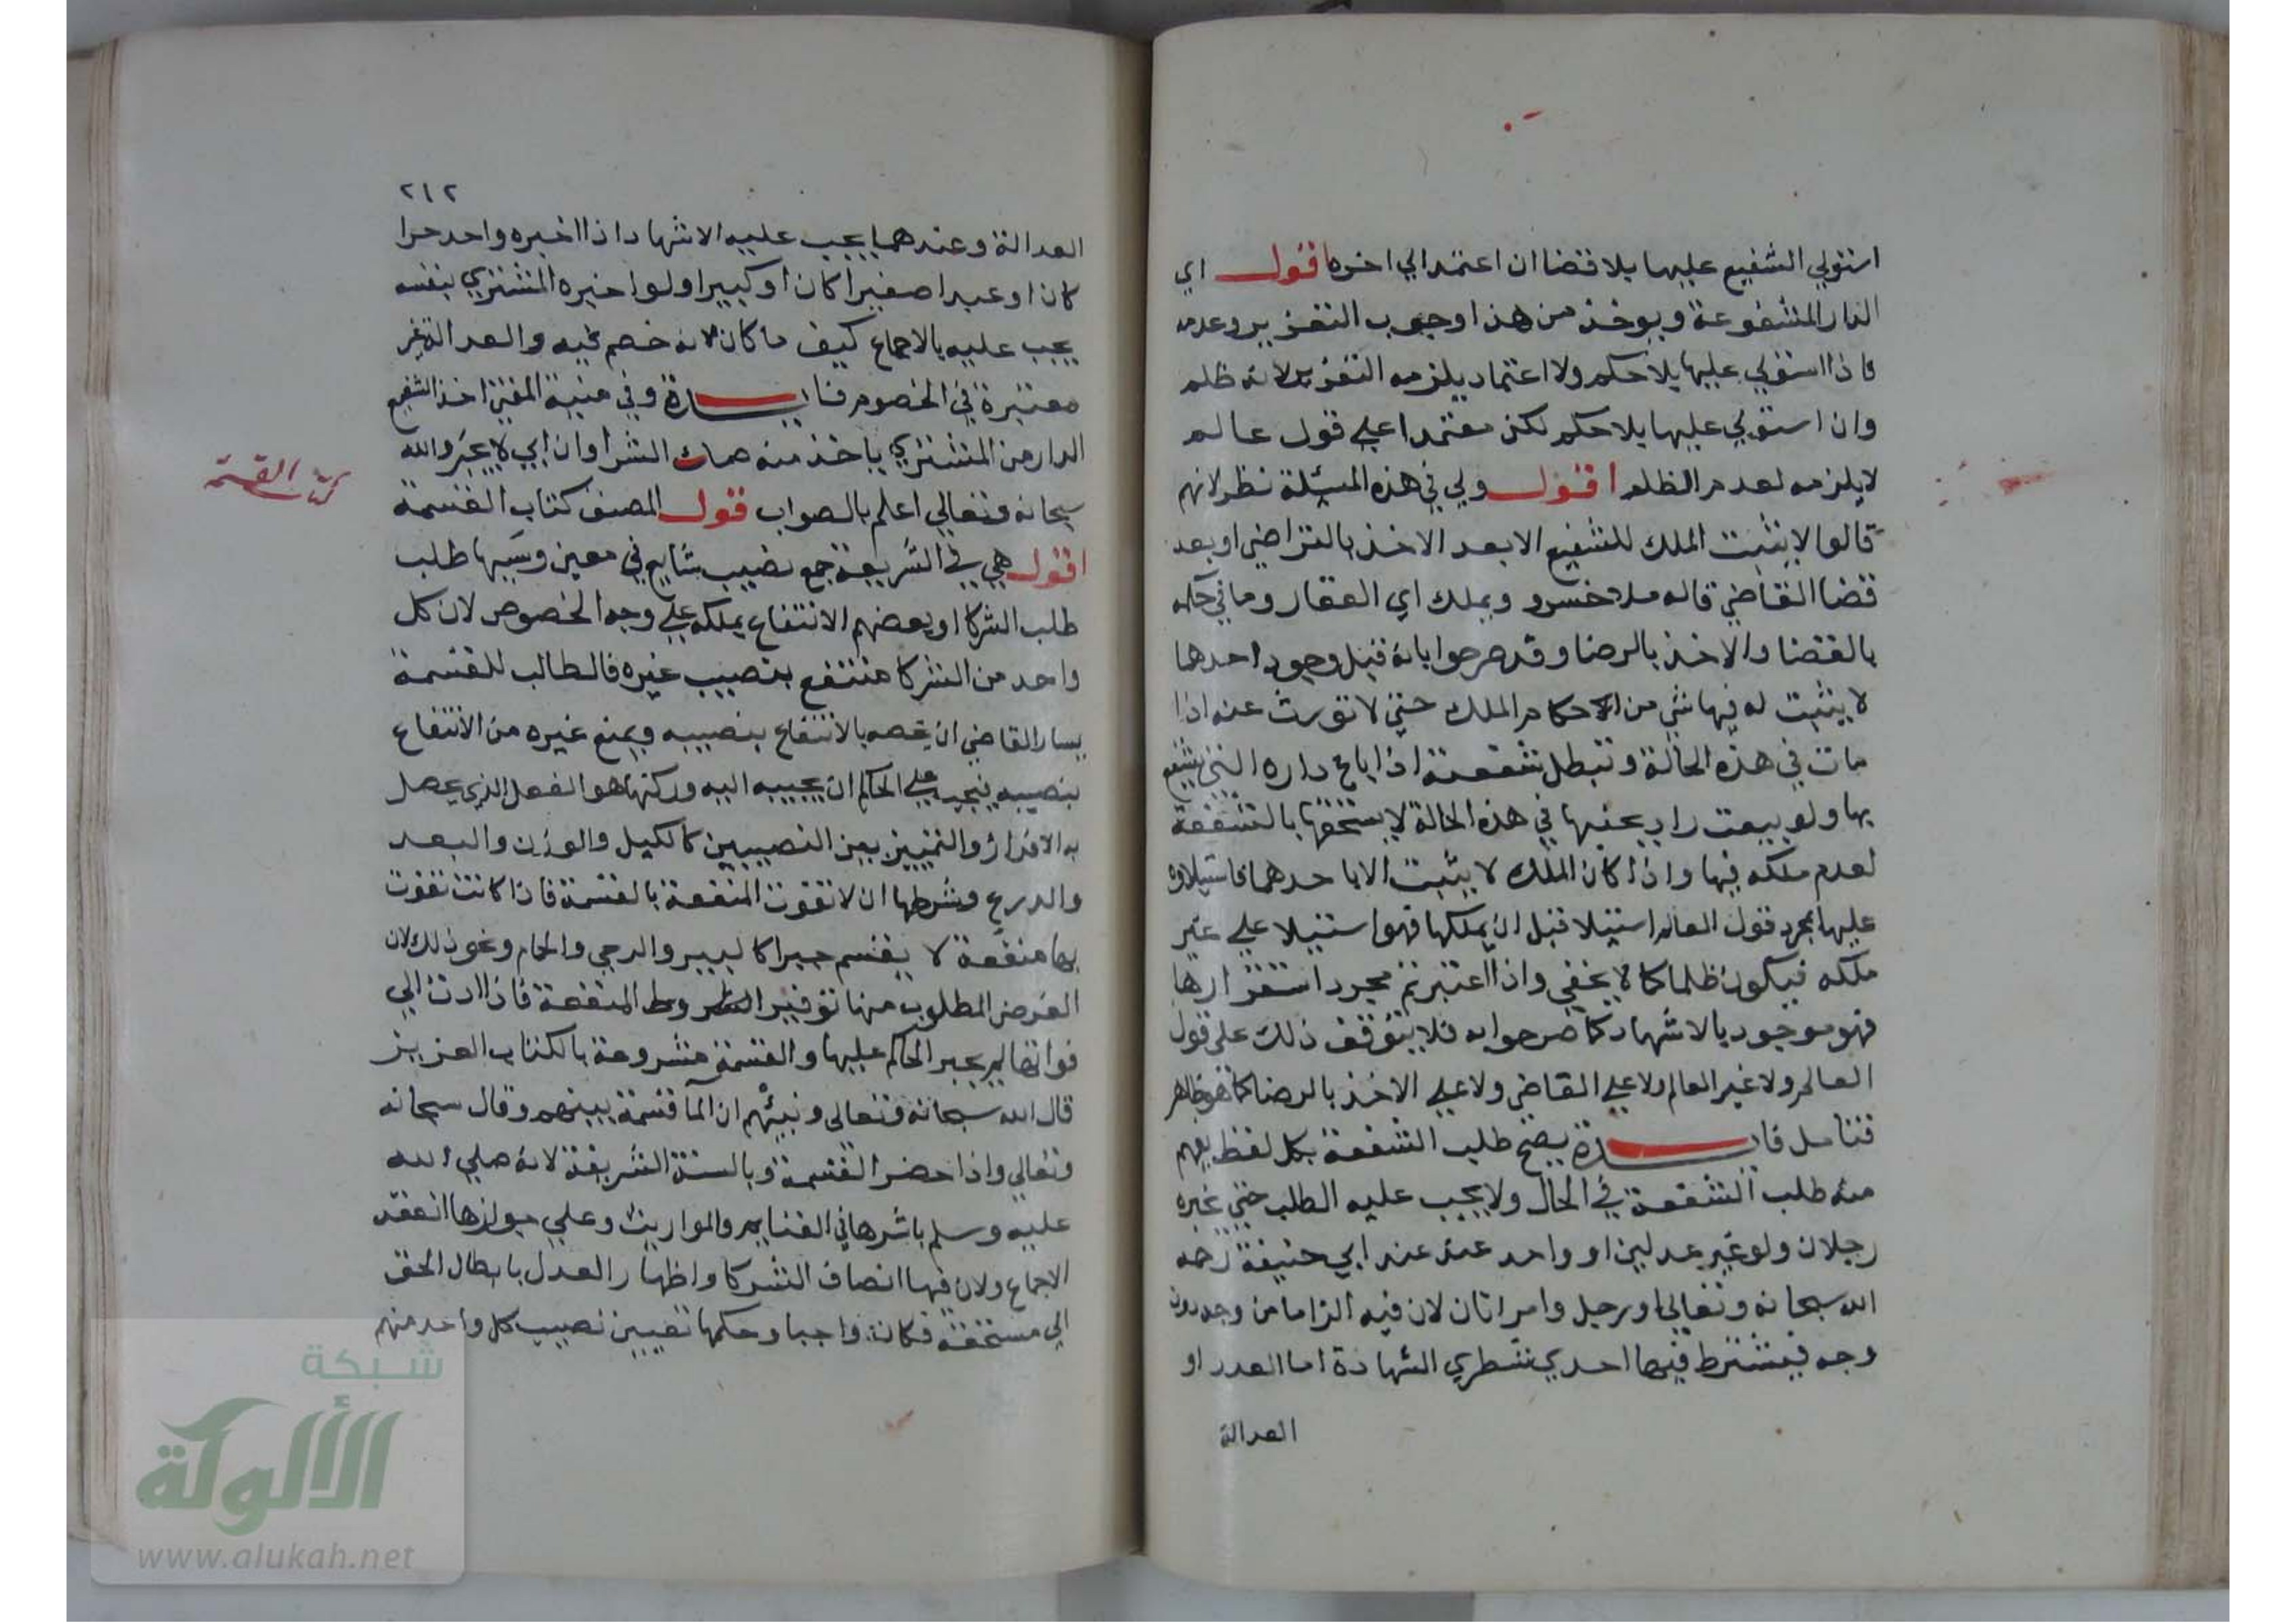 استولي الشفيع عليها بلا قضا ان اعتمد الي اخره اقول اي
الدار المشفوعة ويوخذ من هذا وجوب التعزير وعدمه
فاذا استولي عليها بلا حكم ولا اعتماد يلزمه التعزير لانه ظلم
وان استولي عليها بلا حكم لكن معتمدا علي قول عالم
لا يلزمه لعدم الظلم اقول ولي في هذه المسئلة نظر لانهم
قالوا لا يثبت الملك للشفيع الا بعد الاخذ بالتراضي او بعد
قضا القاضي قاله ملا خسرو ويملك اي العقار وما في حكمه
بالقضا والاخذ بالرضا وقد صرحوا بانه قبل وجود احدهما
لا يثبت له فيها شي من احكام الملك حتي لا تورث عنه اذا
مات في هذه الحالة وتبطل شفعته اذا باع داره التي يشفع
بها ولو بيعت دار بجنبها في هذه الحالة لا يستحقها بالشفعة
لعدم ملكه فيها واذا كان الملك لا يثبت الا باحدهما فاستيلاوه
عليها بمجرد قول العالم استيلا قبل ان يملكها فهو استيلا علي غير
ملكه فيكون ظلما كما لا يخفي واذا اعتبرتم مجرد استقرارها
فهو موجود بالاشهاد كما صرحوا به فلا يتوقف ذلك علي قول
العالم ولا غير العالم ولا علي القاضي ولا علي الاخذ بالرضا كما هو ظاهر
فتامل فايدة يصح طلب الشفعة بكل لفظ يفهم
منه طلب الشفعة في الحال ولا يجب عليه الطلب حتي يخبره
رجلان ولو غير عدلين او واحد عدل عند ابي حنيفة رحمه
الله سبحانه وتعالي او رجل وامراتان لان فيه الزاما من وجه دون
وجه فيشترط فيها احدي شطري الشهادة اما العدد او
العدالة
٢١٢
العدالة وعندهما يجب عليه الاشهاد اذا اخبره واحد حرا
كان او عبدا صغيرا كان او كبيرا ولو اخبره المشتري بنفسه
يجب عليه بالاجماع كيف ما كان لانه خصم فيه والعدالة غير
معتبرة في الخصوم فايدة وفي منية المفتي اخذ الشفيع
الدار من المشتري ياخذ منه صك الشرا وان ابي لا يجبر والله
سبحانه وتعالي اعلم بالصواب قول المصنف كتاب القسمة
كتاب القسمة
اقول هي في الشريعة جمع نصيب شايع في معين وسببها طلب
طلب الشركا او بعضهم الانتفاع بملكه علي وجه الخصوص لان كل
واحد من الشركا منتفع بنصيب غيره فالطالب للقسمة
يسال القاضي ان يخصه بالانتفاع بنصيبه ويمنع غيره من الانتفاع
بنصيبه فيجب علي الحاكم ان يجيبه اليه وركنها هو الفعل الذي يحصل
به الافراز والتمييز بين النصيبين كالكيل والوزن والعد
والدرع وشرطها ان لا تفوت المنفعة بالقسمة فاذا كانت تفوت
بها منفعة لا يقسم جبرا كالبير والرحي والحمام ونحو ذلك لان
الغرض المطلوب منها توفير المنفعة فاذا ادت الي
فواتها لم يجبر الحاكم عليها والقسمة مشروعة بالكتاب العزيز
قال الله سبحانه وتعالي ونبئهم ان الما قسمة بينهم وقال سبحانه
وتعالي واذا حضر القسمة وبالسنة الشريفة لانه صلي الله
عليه وسلم باشرها في الغنايم والمواريث وعلي جوازها انعقد
الاجماع ولان فيها انصاف الشركا واظهار العدل بايصال الحق
الي مستحقه فكانت واجبا وحكمها تعيين نصيب كل واحد منهم
شبكة
الألوكة
www.alukah.net